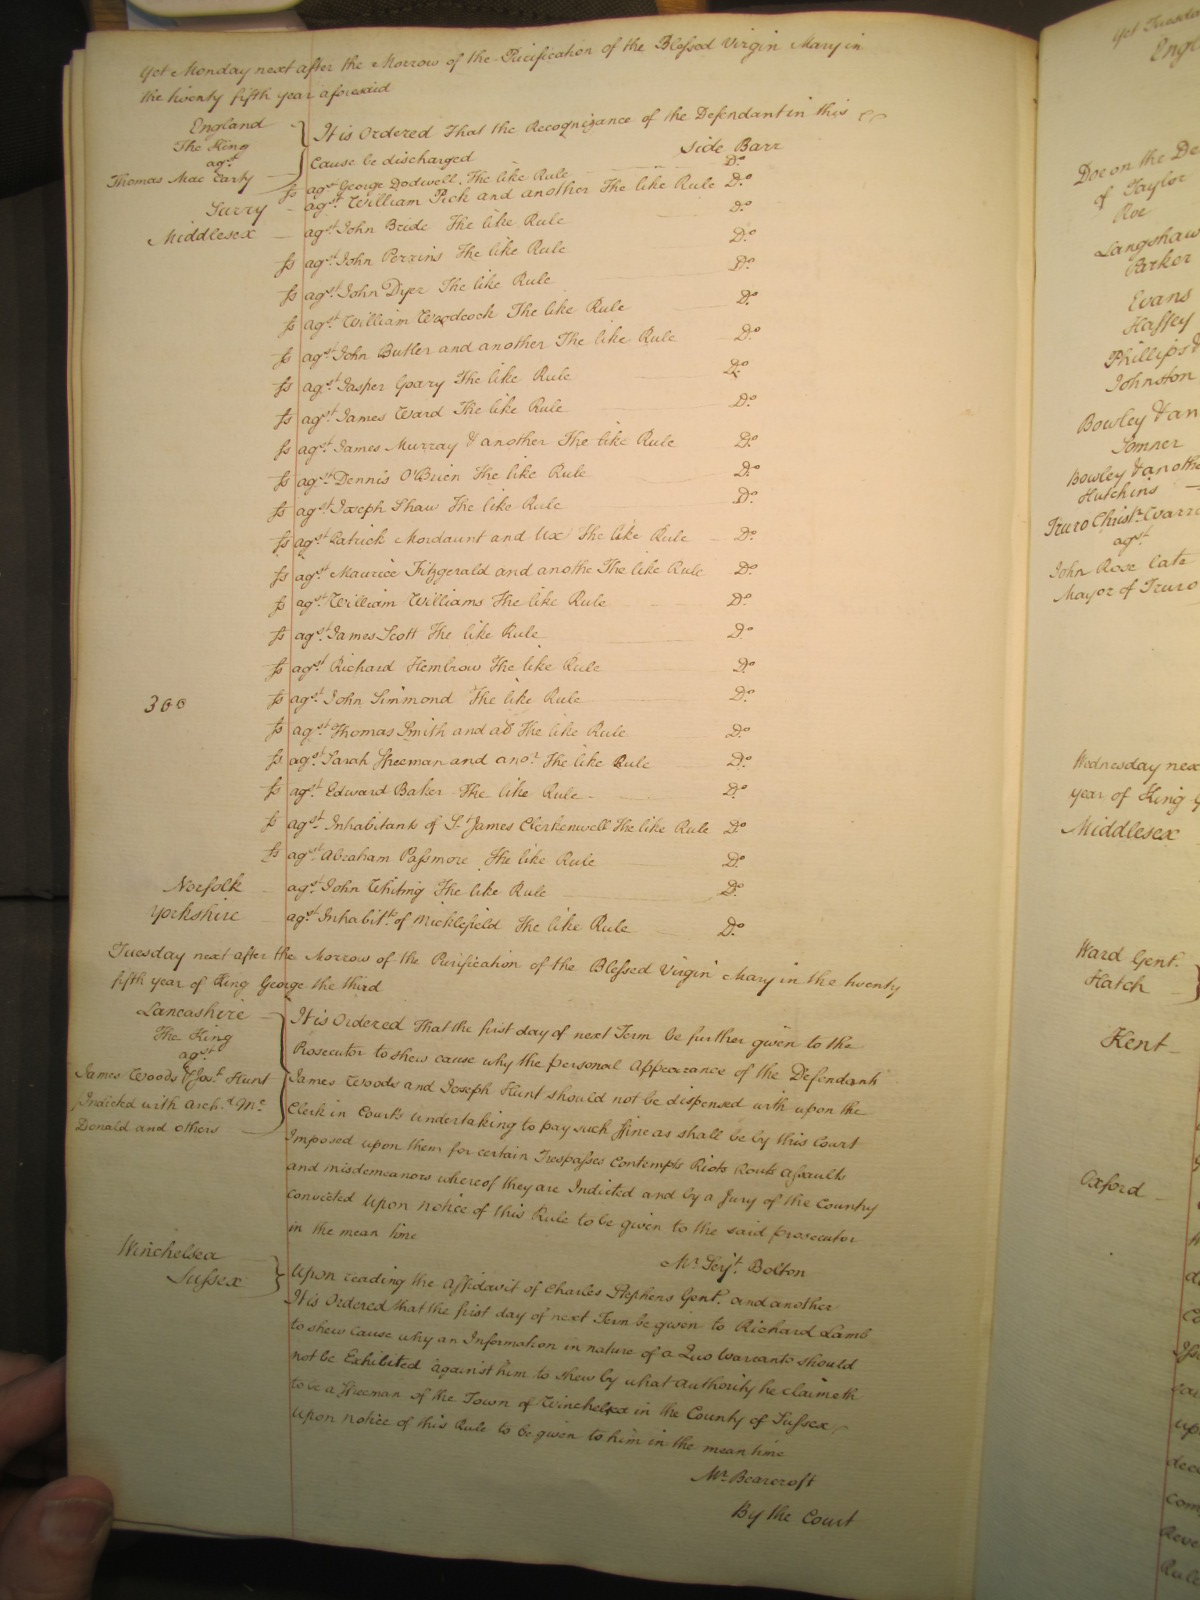 Yet Monday next after the Morrow of the Purification of the Blessed Virgin Mary in
the twenty fifth year aforesaid
England
The King
agst
Thomas Mac Carty
It is Ordered That the Recognizance of the Defendant in this
Cause be discharged Side Barr
fs agst George Dodwell. The like Rule Do
Surry agst William Pick and another The like Rule Do
Middlesex agst John Bride The like Rule Do
fs agst John Perrins The like Rule Do
fs agst John Dyer The like Rule Do
fs agst William Woodcock The like Rule Do
fs agst John Butler and another The like Rule Do
fs agst Jasper Geary The like Rule Do
fs agst James Ward The like Rule Do
fs agst James Murray & another The like Rule Do
fs agst Dennis O'Brien The like Rule Do
fs agst Joseph Shaw The like Rule Do
fs agst Patrick Mordaunt and Ux The like Rule Do
fs agst Maurice Fitzgerald and anothe The like Rule Do
fs agst William Williams The like Rule Do
fs agst James Scott The like Rule Do
fs agst Richard Hembrow The like Rule Do
300 fs agst John Simmond The like Rule Do
fs agst Thomas Smith and ao The like Rule Do
fs agst Sarah Freeman and anor The like Rule Do
fs agst Edward Baker The like Rule Do
fs agst Inhabitants of St James Clerkenwell The like Rule Do
fs agst Abraham Passmore The like Rule Do
Norfolk agst John Whiting The like Rule Do
Yorkshire agst Inhabitts of Micklefield The like Rule Do
Tuesday next after the Morrow of the Purification of the Blessed Virgin Mary in the twenty
fifth year of King George the third
Lancashire
The King
agst
James Woods & Josh Hunt
Indicted with Archd Mc
Donald and others
It is Ordered That the first day of next Term be further given to the
Prosecutor to shew cause why the personal Appearance of the Defendants
James Woods and Joseph Hunt should not be dispensed wth upon the
Clerk in Courts undertaking to pay such ffine as shall be by this Court
Imposed upon them for certain Trespasses Contempts Riots Routs Assaults
and misdemeanors whereof they are Indicted and by a Jury of the Country
convicted Upon notice of this Rule to be given to the said prosecutor
in the mean time
Mr Serjt Bolton
Winchelsea
Sussex
Upon reading the Affidavit of Charles Stephens Gent. and another
It is Ordered that the first day of next Term be given to Richard Lamb
to shew cause why an Information in nature of a Quo Warranto should
not be Exhibited against him to shew by what authority he claimeth
to be a Freeman of the Town of Winchelsea in the County of Sussex
Upon notice of this Rule to be given to him in the mean time
Mr Bearcroft
By the Court
Yet Tuesda
Engl
Doe on the De
of Taylor
Roe
Langshaw
Parker
Evans
Hassey
Phillips &
Johnston
Bowley & an
Somner
Bowley & anothe
Hutchins
Truro Christr Warri
agst
John Rose late
Mayor of Truro
Wednesday nex
year of King G
Middlesex
Ward Gent.
Hatch
Kent
Oxford